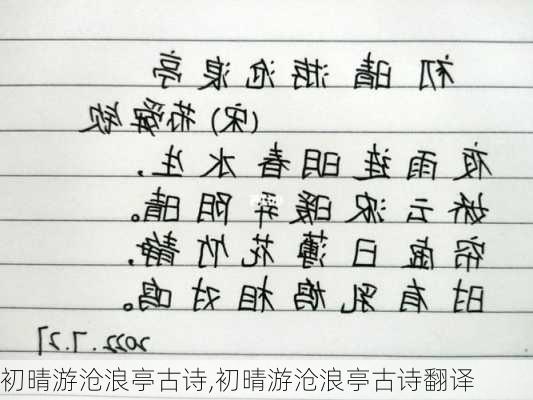 初晴游沧浪亭
(宋)苏舜钦
夜雨连明春水生，
娇云浓暖弄阴晴。
帘虚日薄花竹静，
时有乳鸠相对鸣。
2022.7.27
初晴游沧浪亭古诗,初晴游沧浪亭古诗翻译